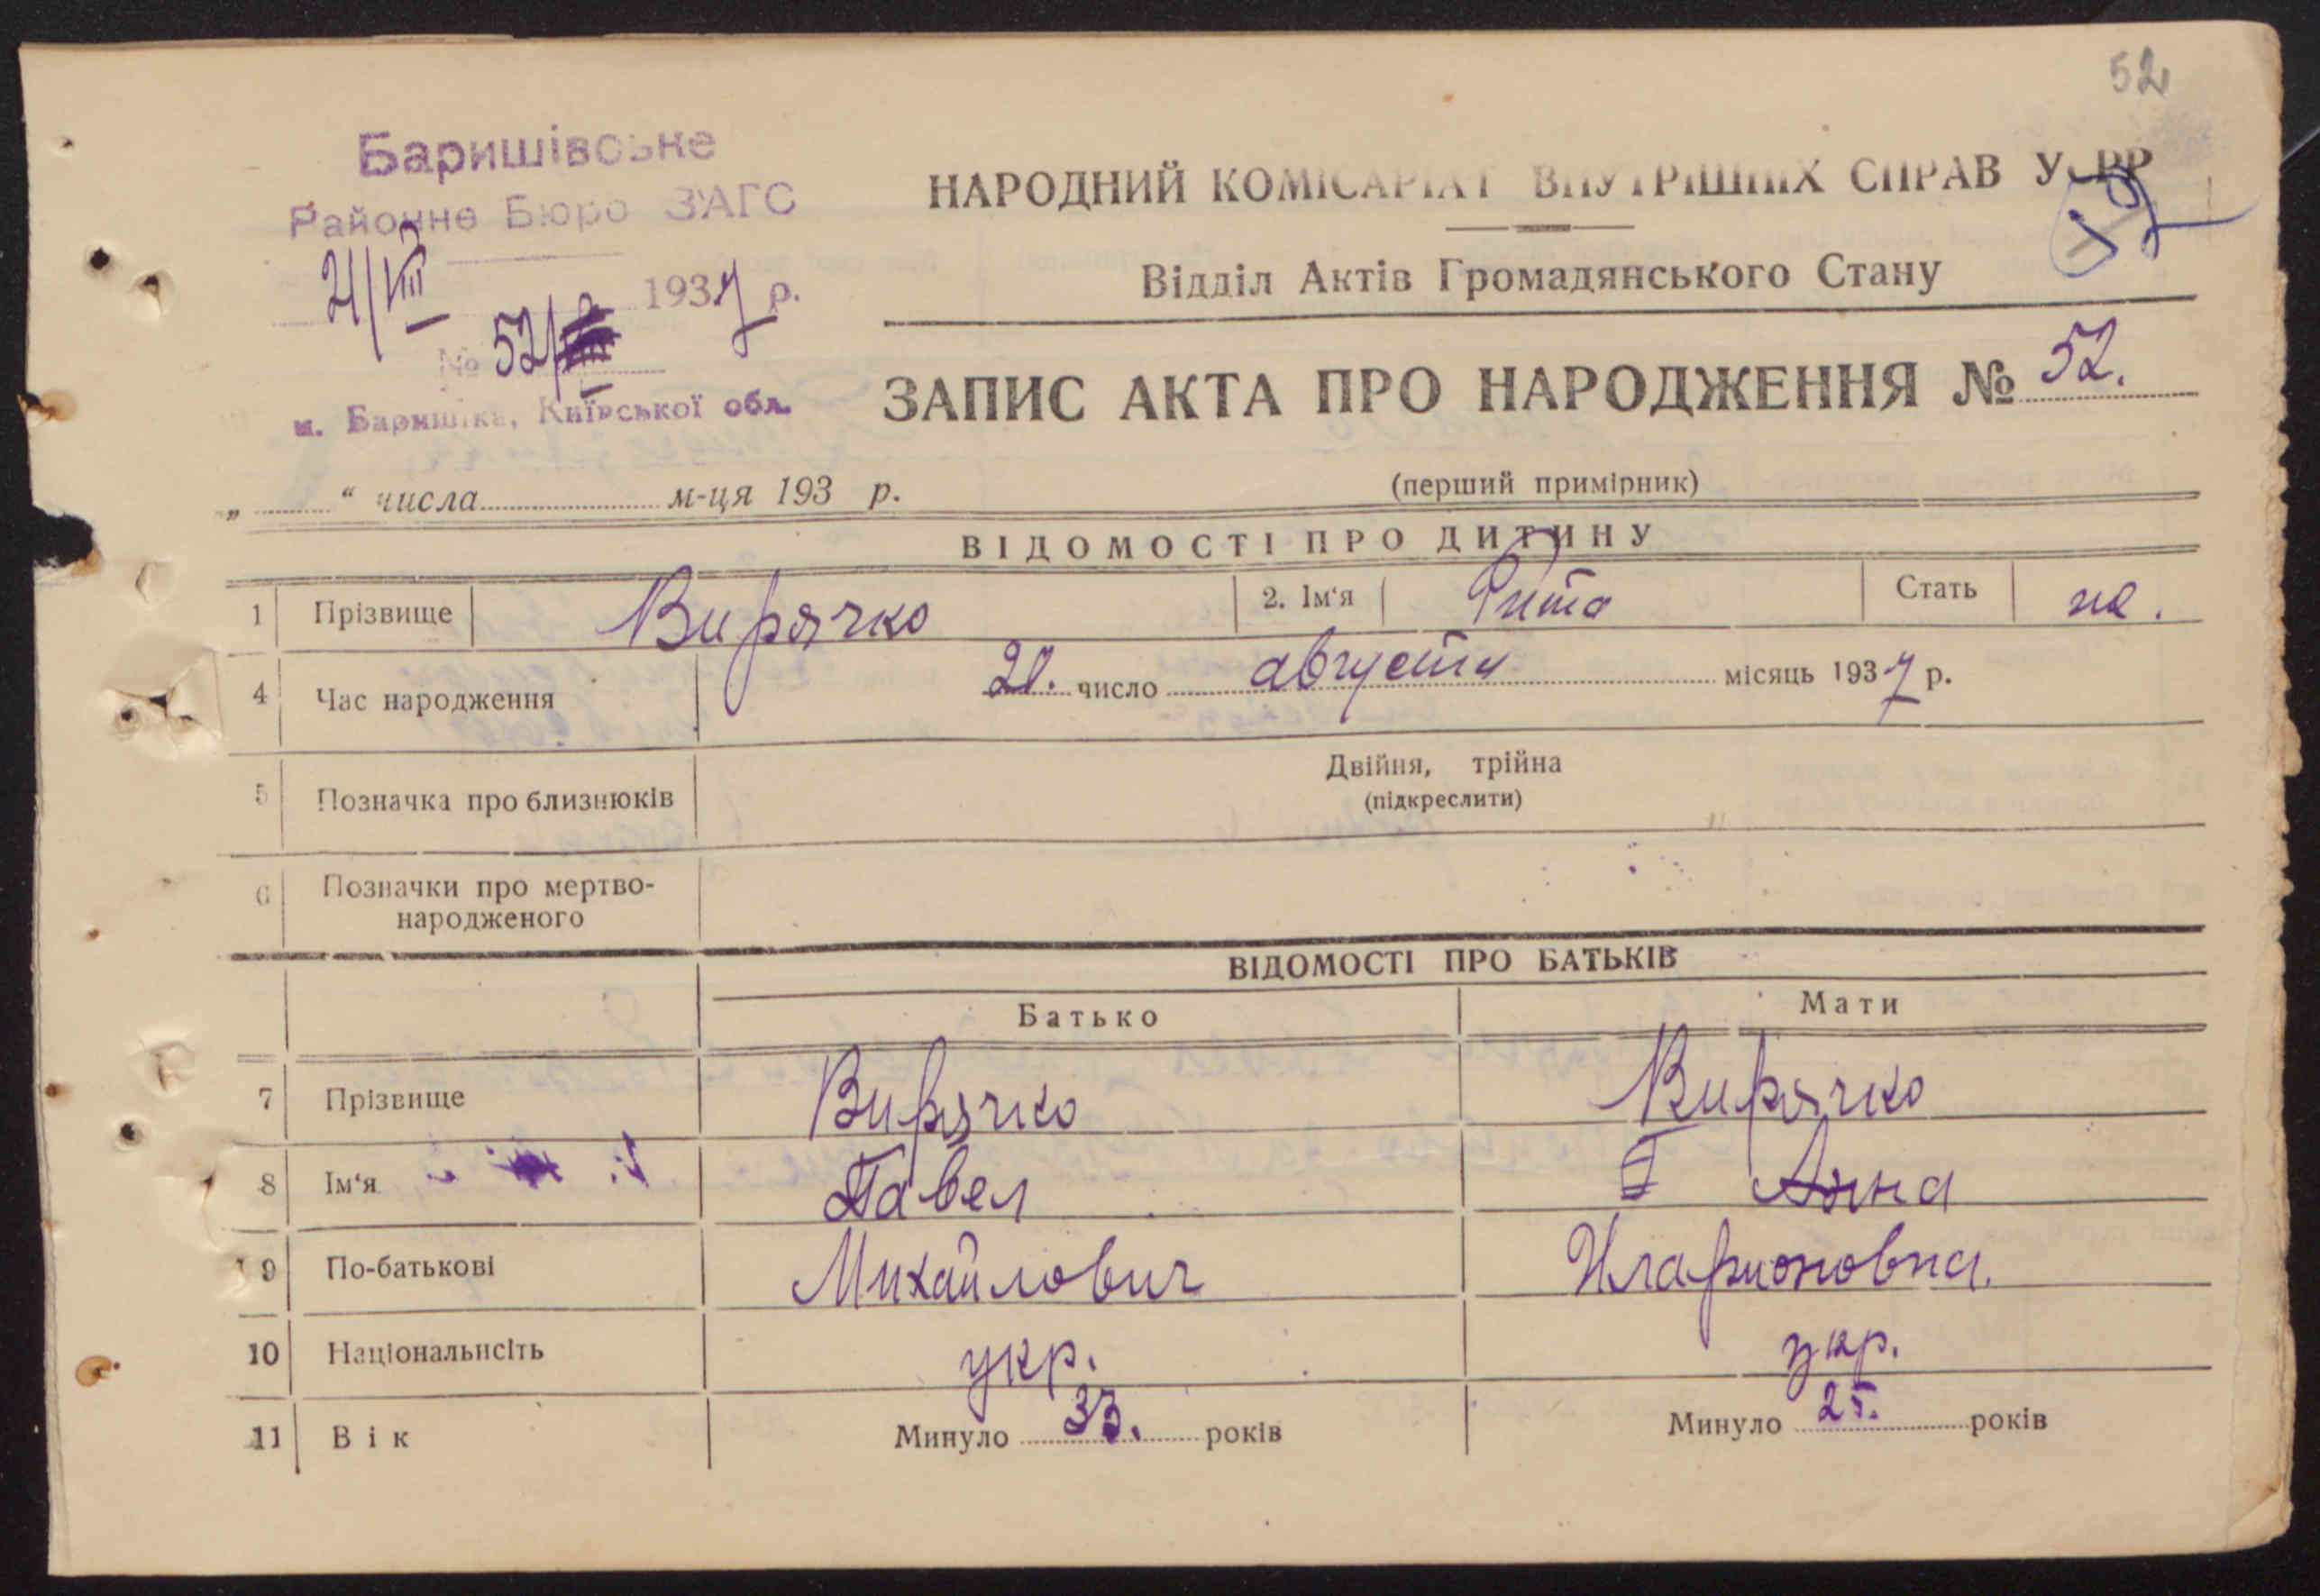 52
Баришівське
Районне Бюро ЗАГС
21/VIII 1937 р.
№ 52/
м. Баришівка, Київської обл.
НАРОДНИЙ КОМІСАРІАТ ВНУТРІШНІХ СПРАВ УСРР
Відділ Актів Громадянського Стану
ЗАПИС АКТА ПРО НАРОДЖЕННЯ № 52.
„ “ числа м-ця 193 р.
(перший примірник)
ВІДОМОСТІ ПРО ДИТИНУ
1 Прізвище Вирячко 2. Ім‘я Рита Стать
4 Час народження 20. число августа місяць 1937 р.
5 Позначка про близнюків Двійня, трійна
(підкреслити)
6 Позначки про мертво-
народженого
ВІДОМОСТІ ПРО БАТЬКІВ
Батько Мати
7 Прізвище Вирячко Вирячко
8 Ім‘я Павел Анна
9 По-батькові Михайлович Иларионовна.
10 Національнсіть укр. укр.
11 Вік Минуло 33. років Минуло 25. років